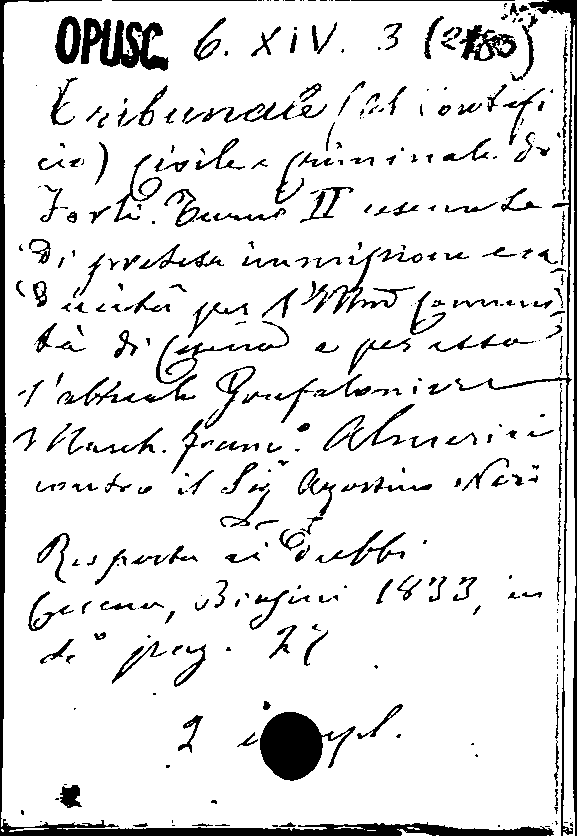 OPUSC. 6. XIV. 3 (2180)
Tribunale (del Pontefi
cio) civile e criminale di
Forlì. Turno II
Di pretesa immissione e ca
ducità per l'Illma Communi
tà di e per essa
l'attuale Gonfaloniere
March. Franc.º Almerici
contro il Sigʳ Agostino Neri
Risposta ai Dubbi
Cesena, Biasini 1833, in
4º pag. 27
2